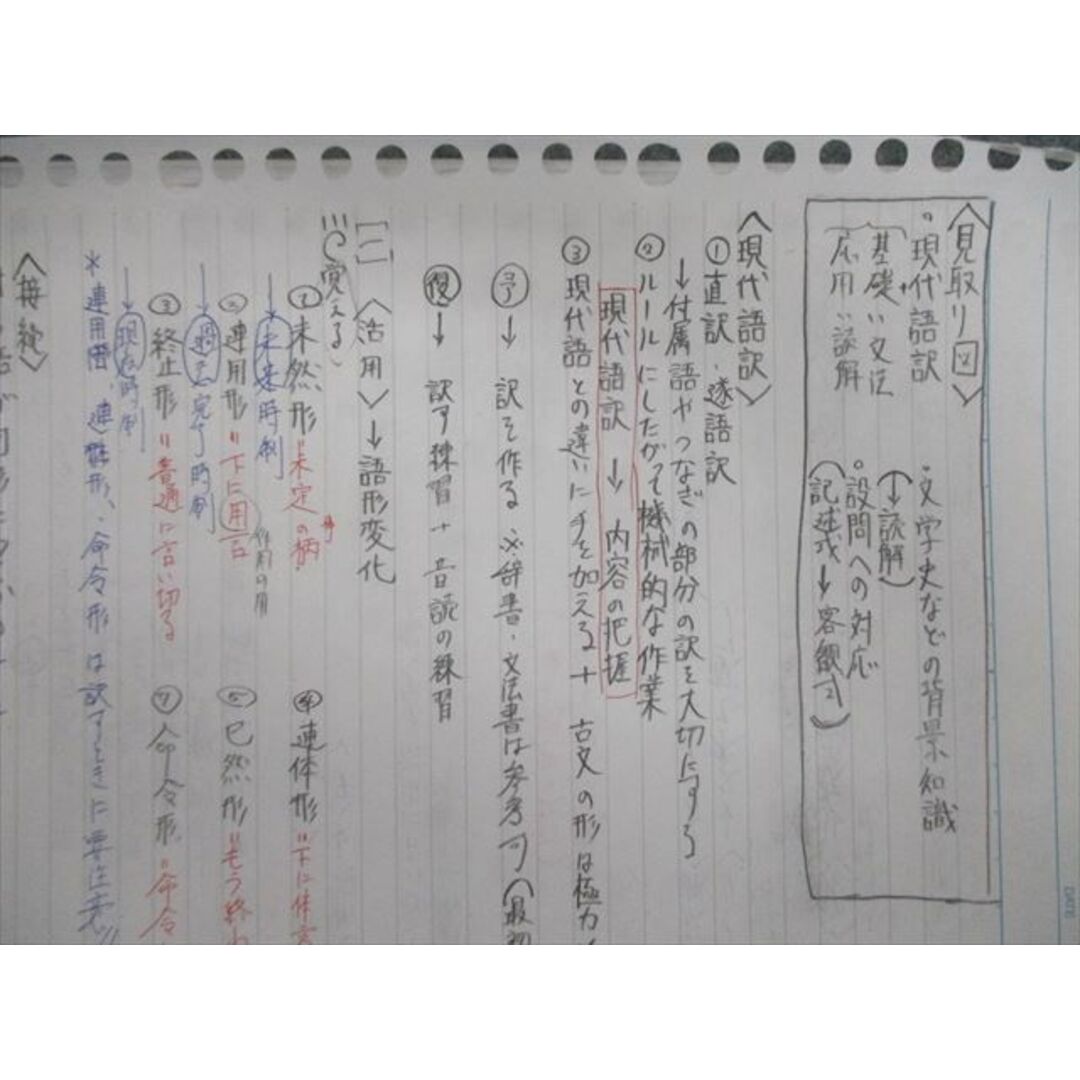 〈見取り図〉
・現代語訳
・文学史などの背景知識
基礎…文法
(→読解)
応用…読解
・設問への対応
(記述式→客観式)
〈現代語訳〉
①直訳・逐語訳
→付属語やつなぎの部分の訳を大切にする
②ルールにしたがって機械的な作業
現代語訳 → 内容の把握
③現代語との違いに手を加える + 古文の形は極力
予→ 訳を作る ※辞書・文法書は参考可(最初
復→ 訳す練習 + 音読の練習
〈活用〉→語形変化
覚える
①未然形=未定の事柄
④連体形=下に体言
→未来時制
②連用形=下に用言
⑤已然形=もう終わ
→過去完了時制
③終止形=普通に言い切る
命令形=命令
→現在時制
*連用形、連体形、命令形は訳すときに要注意!!
〈接続〉